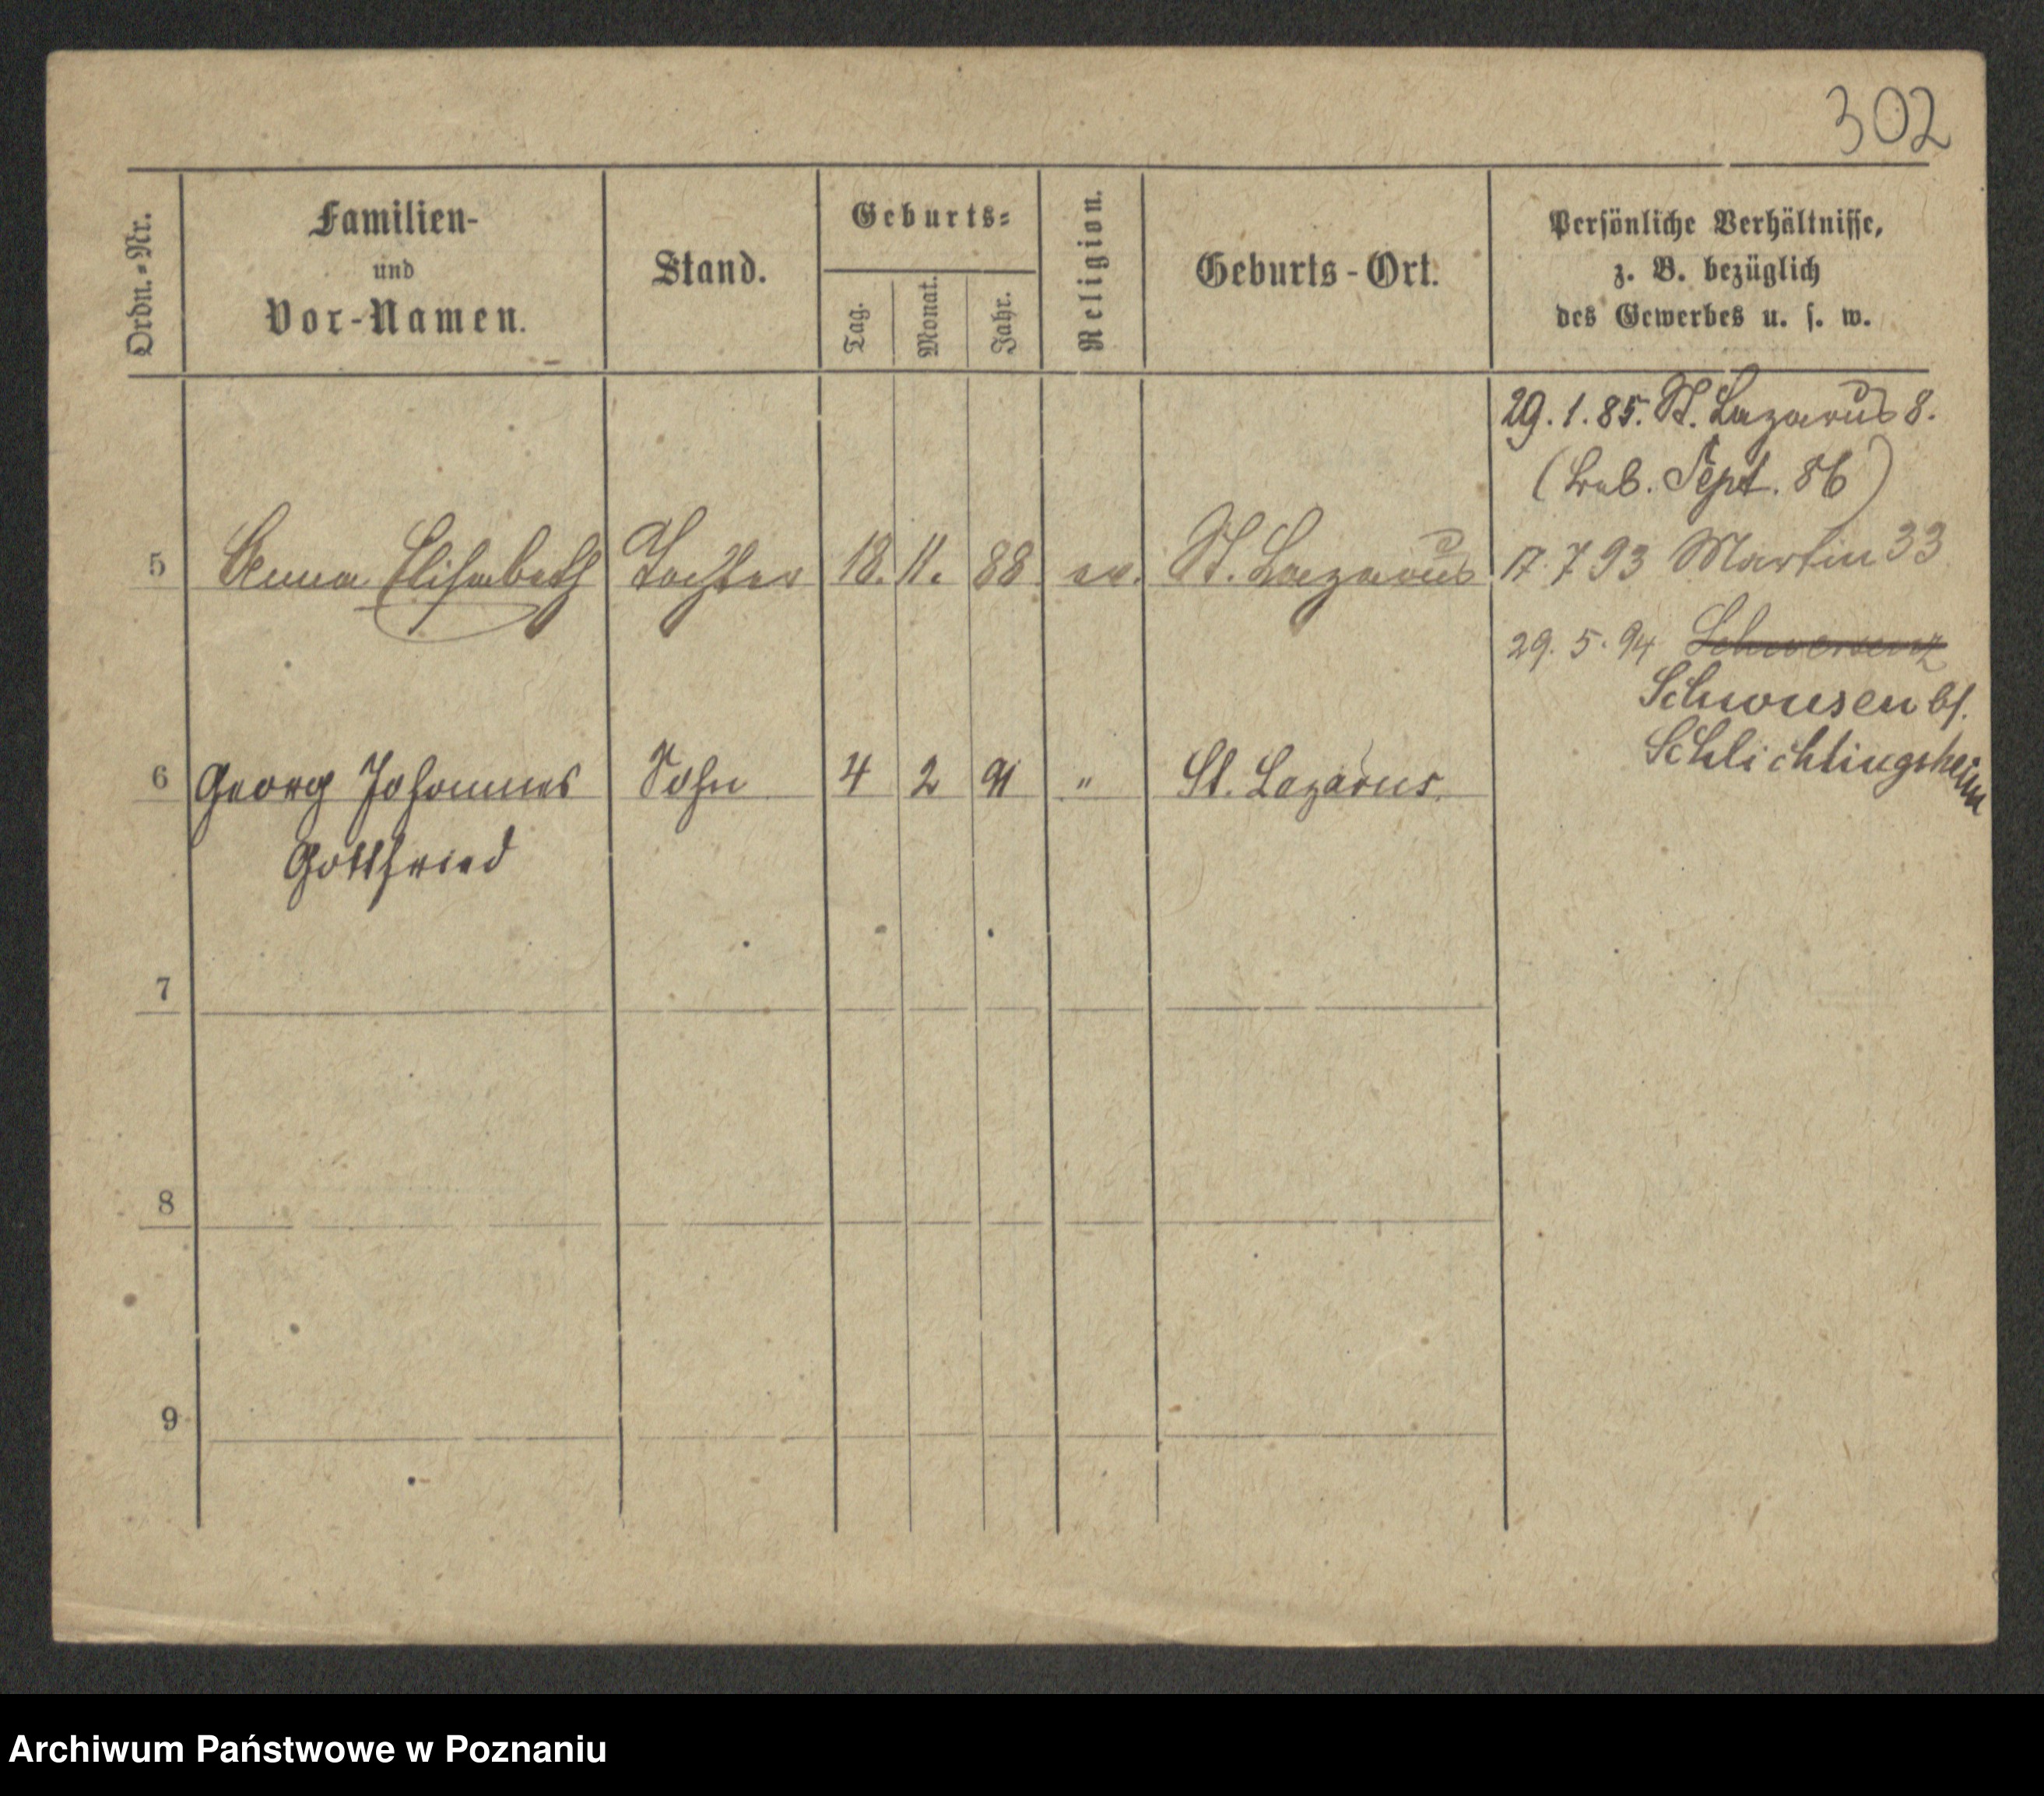 302
Ordn.-Nr.
Familien-
und
Vor-Namen.
Stand.
Geburts-
Tag.
Monat.
Jahr.
Religion.
Geburts-Ort.
Persönliche Verhältnisse,
z. B. bezüglich
des Gewerbes u. s. w.
29. 1. 85. St. Lazarus 8.
Sept. 86)
5 Anna Elisabeth Tochter 18. 11. 88 ev. St. Lazarus 17. 7 93 Martin 33
29. 5. 94 Schwersenz
Schwusen bf.
Schlichtingsheim
6 Georg Johannes Sohn 4 2 91 " St. Lazarus.
Gottfried
7
8
9
Archiwum Państwowe w Poznaniu